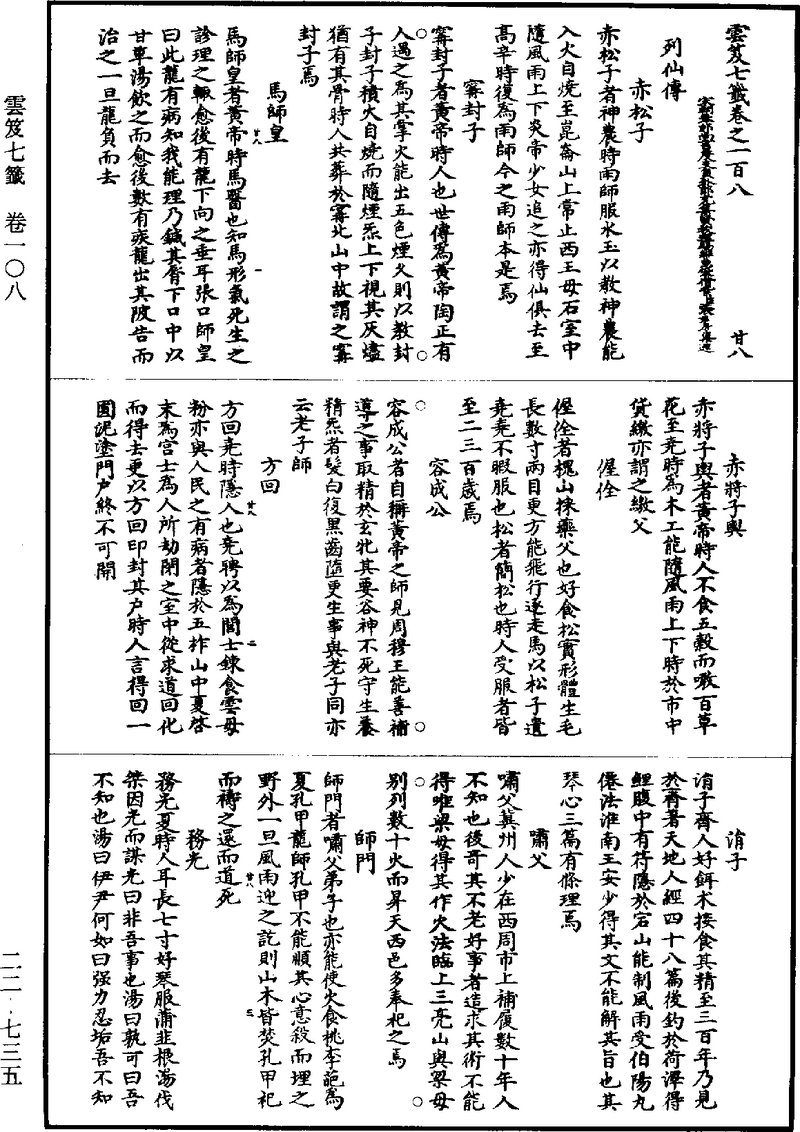 雲笈七籤卷之一百八
廿八
列仙傳
赤松子
赤松子者神農時雨師服水玉以教神農能
入火自燒至崑崙山上常止西王母石室中
隨風雨上下炎帝少女追之亦得仙俱去至
高辛時復為雨師今之雨師本是焉
甯封子
甯封子者黃帝時人也世傳為黃帝陶正有
人過之為其掌火能出五色煙火則以教封
子封子積火自燒而隨煙炁上下視其灰燼
猶有其骨時人共葬於甯北山中故謂之甯
封子焉
馬師皇
馬師皇者黃帝時馬醫也知馬形氣死生之
診理之輒愈後有龍下向之垂耳張口師皇
曰此龍有病知我能理乃鍼其脣下口中以
甘草湯飲之而愈後數有疾龍出其陂告而
治之一旦龍負而去
廿八
一
赤將子輿
赤將子輿者黃帝時人不食五穀而噉百草
花至堯時為木工能隨風雨上下時於市中
貨繳亦謂之繳父
偓佺
偓佺者槐山採藥父也好食松實形體生毛
長數寸兩目更方能飛行逐走馬以松子遺
堯堯不暇服也松者簡松也時人受服者皆
至二三百歲焉
容成公
容成公者自稱黃帝之師見周穆王能善補
導之事取精於玄牝其要谷神不死守生養
精炁者髮白復黑齒隨更生事與老子同亦
云老子師
方回
方回堯時隱人也堯聘以為閭士鍊食雲母
粉亦與人民之有病者隱於五柞山中夏啓
末為宮士為人所劫閉之室中從求道回化
而得去更以方回印封其户時人言得回一
圓泥塗門户終不可開
廿八
二
涓子
涓子齊人好餌术接食其精至三百年乃見
於齊著天地人經四十八篇後釣於荷澤得
鯉腹中有符隱於宕山能制風雨受伯陽九
僊法淮南王安少得其文不能解其旨也其
琴心三篇有條理焉
嘯父
嘯父冀州人少在西周市上補履數十年人
不知也後奇其不老好事者造求其術不能
得唯梁母得其作火法臨上三亮山與梁母
别列數十火而昇天西邑多奉祀之焉
師門
師門者嘯父弟子也亦能使火食桃李葩為
夏孔甲龍師孔甲不能順其心意殺而埋之
野外一旦風雨迎之訖則山木皆焚孔甲祀
而禱之還而道死
務光
務光夏時人耳長七寸好琴服蒲韭根湯伐
桀因光而謀光曰非吾事也湯曰孰可曰吾
不知也湯曰伊尹何如曰强力忍垢吾不知
廿八
三
雲笈七籤 卷一〇八
二二·七三五